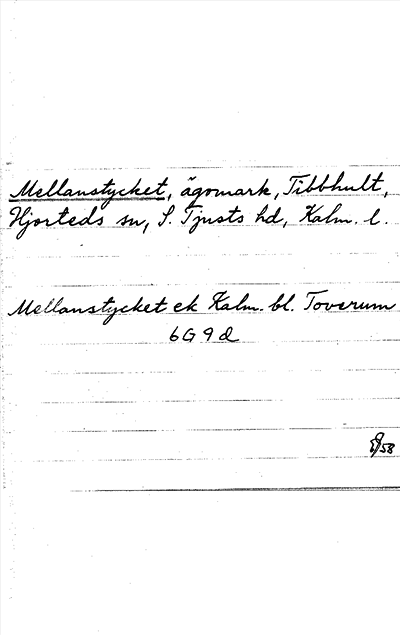 Mellanstycket, ägomark, Tibbhult,
Hjorteds sn, S. Tjusts hd, Kalm. l.
Mellanstycket ek Kalm. bl. Toverum
6G 9d
58